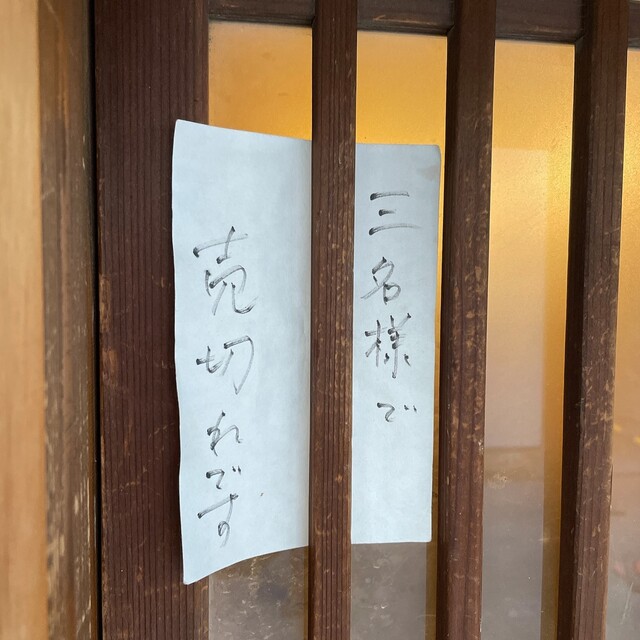 三名様で
売切れです